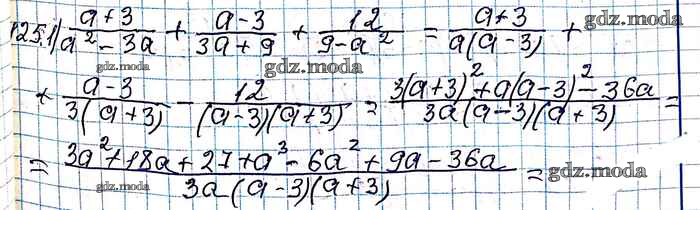 125.1) (a+3)/(a² - 3a) + (a-3)/(3a+9) + 12/(9-a²) = (a+3)/(a(a-3)) +
gdz.moda
gdz.moda
gdz.moda
+ (a-3)/(3(a+3)) - 12/((a-3)(a+3)) = (3(a+3)² + a(a-3)² - 36a)/(3a(a-3)(a+3)) =
gdz.moda
gdz.moda
= (3a² + 18a + 27 + a³ - 6a² + 9a - 36a)/(3a(a-3)(a+3)) =
gdz.moda
gdz.moda